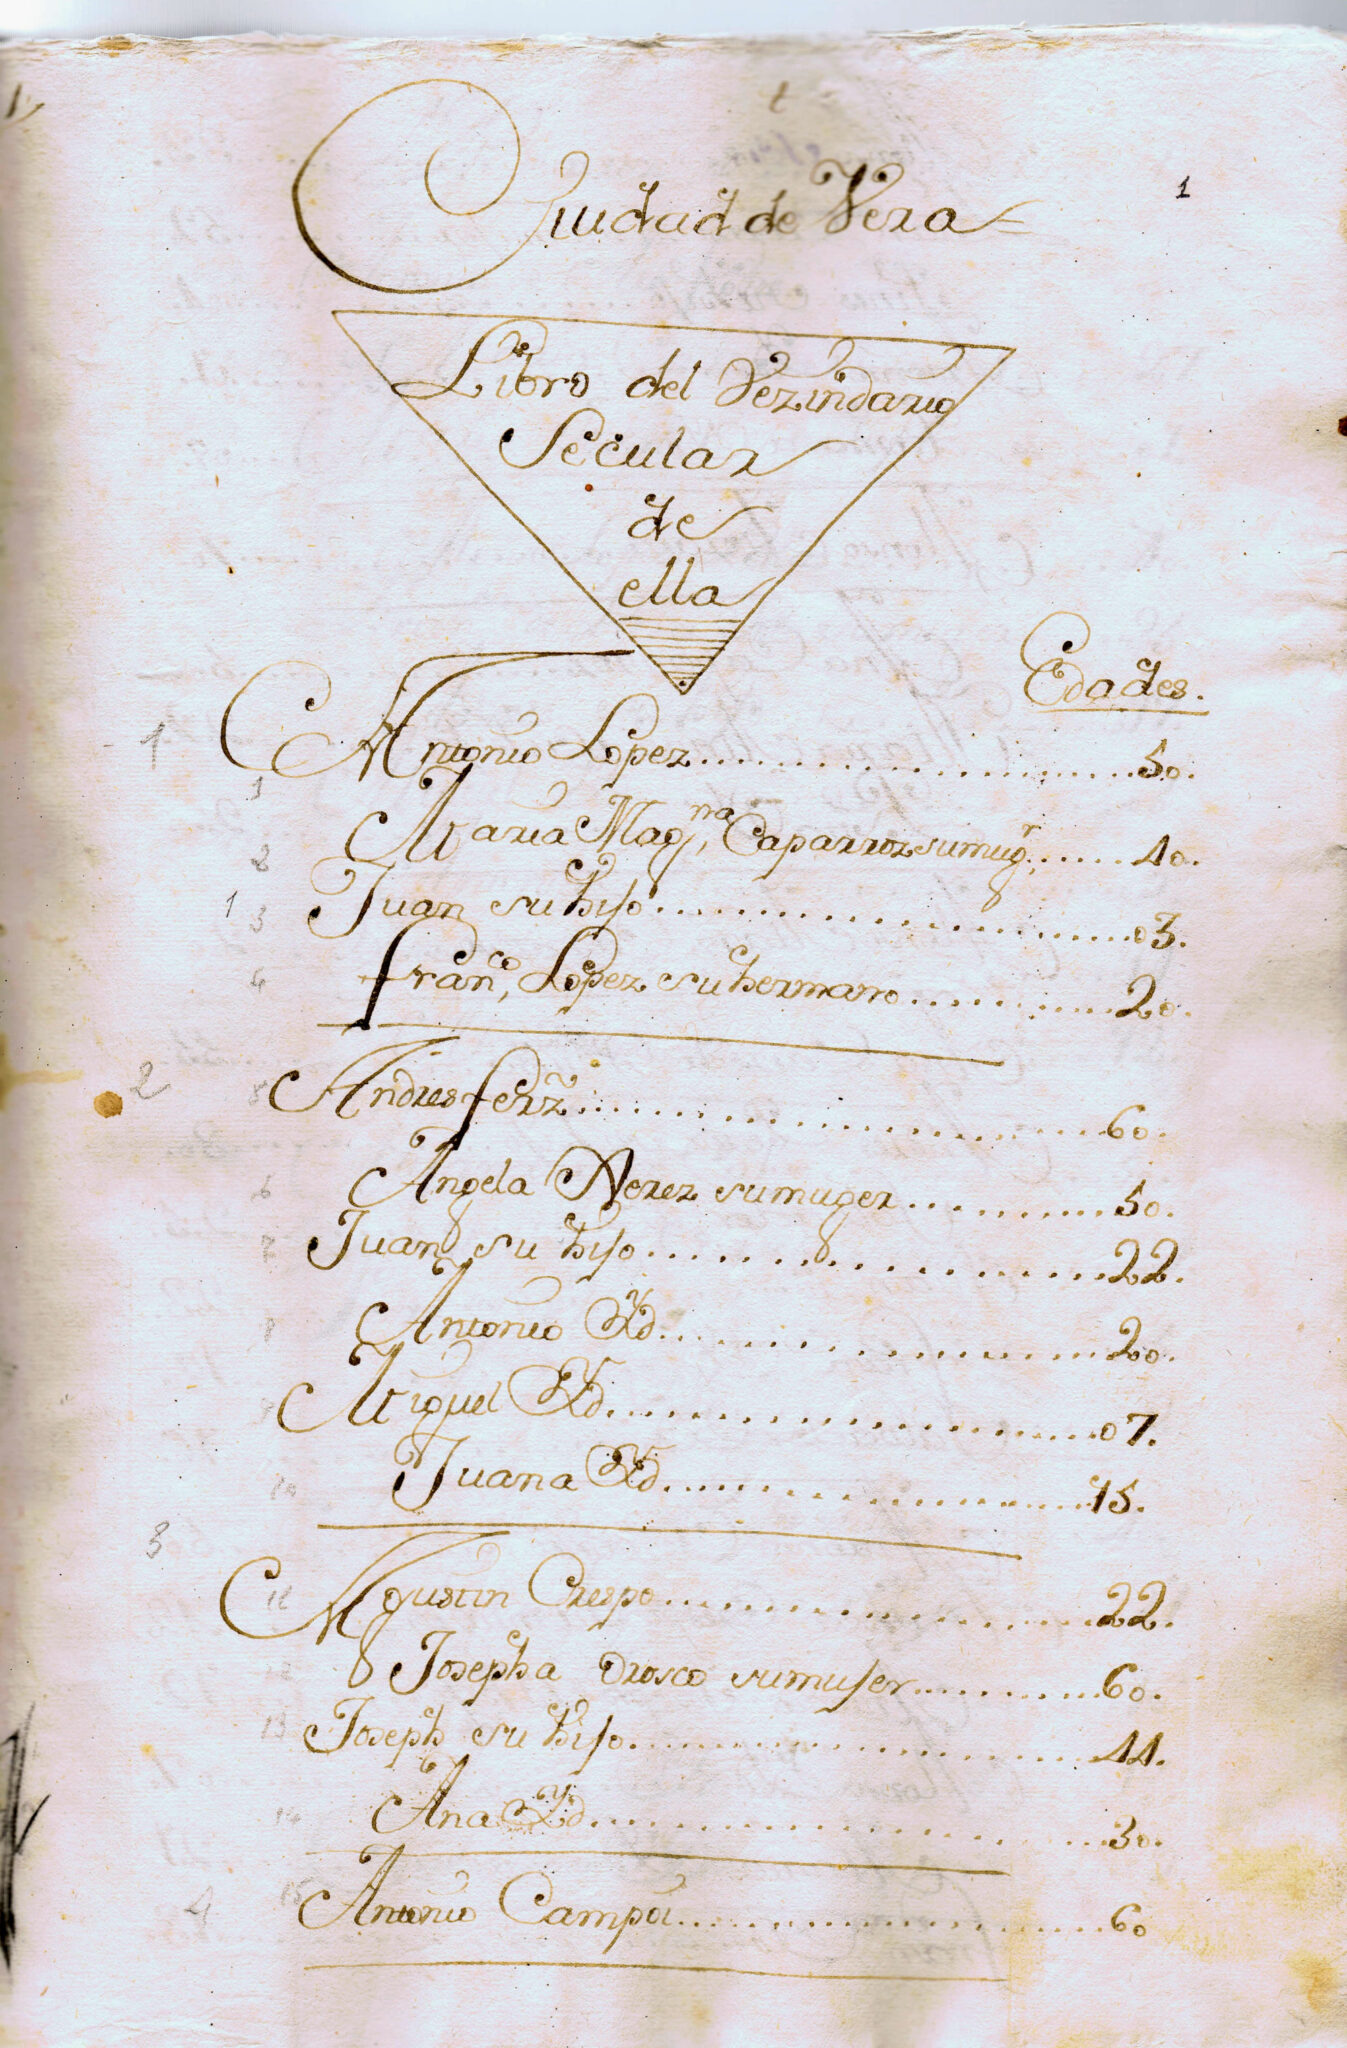 t
1
Ciudad de Vera
Libro del Vezindario
Secular
de
ella
Edades.
1 Antonio Lopez 50.
1
2 Maria Magna, Caparroz su mugr 40.
1 3 Juan su hijo 03.
4 Franco, Lopez su hermano 20.
2 5 Andres ferrz 60.
6 Angela Perez su muger 50.
7 Juan su hijo 22.
8 Antonio Yd 20.
9 Miguel Yd 07.
10 Juana Yd 15.
3
12 Agustin Crespo 22.
Josepha Orosco su mujer 60.
13 Joseph su hijo 44.
14 Ana Yd 30.
4 15 Antonio Campoi 60